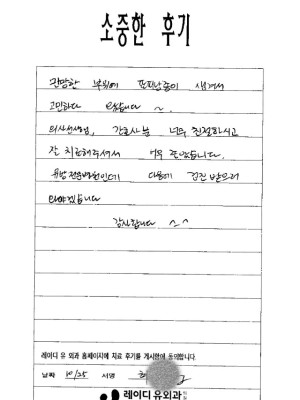 소중한 후기
민망한 부위에 표피낭종이 생겨서
고민하다 왔습니다 ~.
의사선생님, 간호사님 너무 친절하시고
잘 치료해주셔서 너무 좋았습니다.
유방전문병원인데 다음에 검진 받으러
와야겠습니다
감사합니다 ^^
레이디 유 외과 홈페이지에 치료 후기를 게시함에 동의합니다.
날짜 10/25 서명
레이디유외과